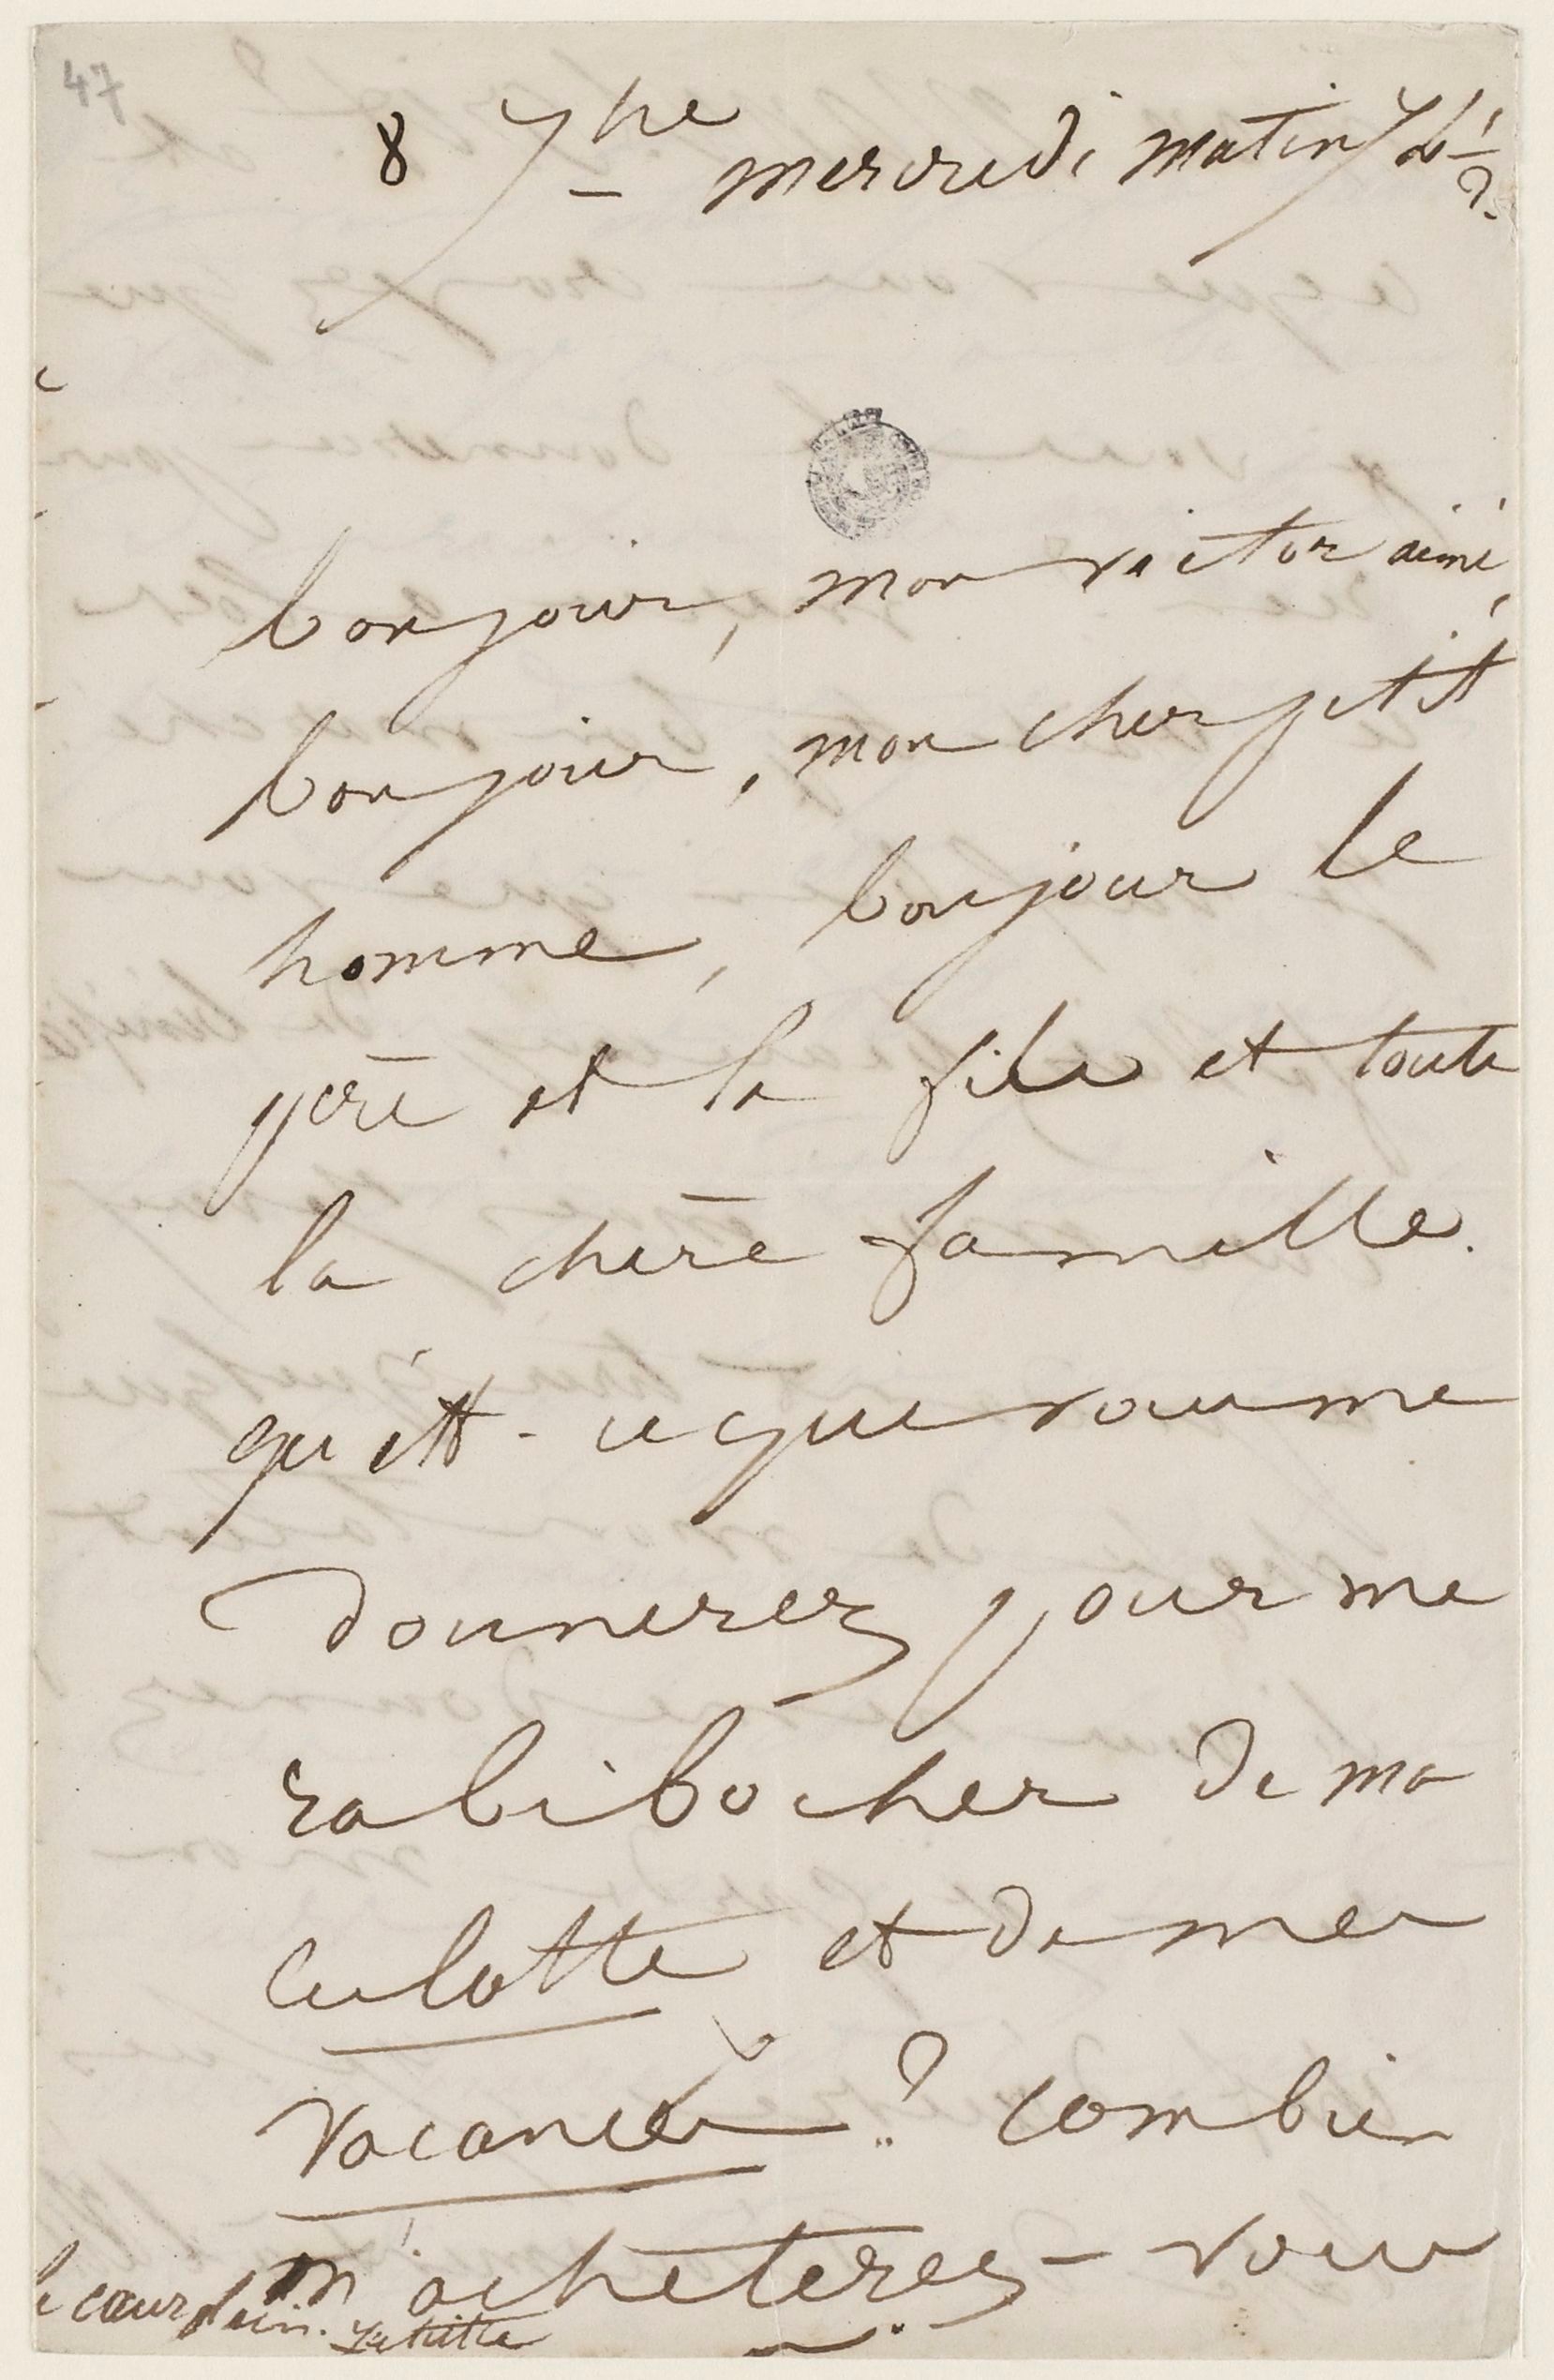 47
8 7bre mercredi matin 7 h ½
bonjour, mon victor aimé,
bonjour, mon cher petit
homme, bonjour le
père et le fils et toute
la chère famille.
qu'est-ce que vous me
donnerez pour me
rabibocher de ma
culotte et de mes
vacances ? combien
m'acheterez-vous
le cœur plein. Juliette